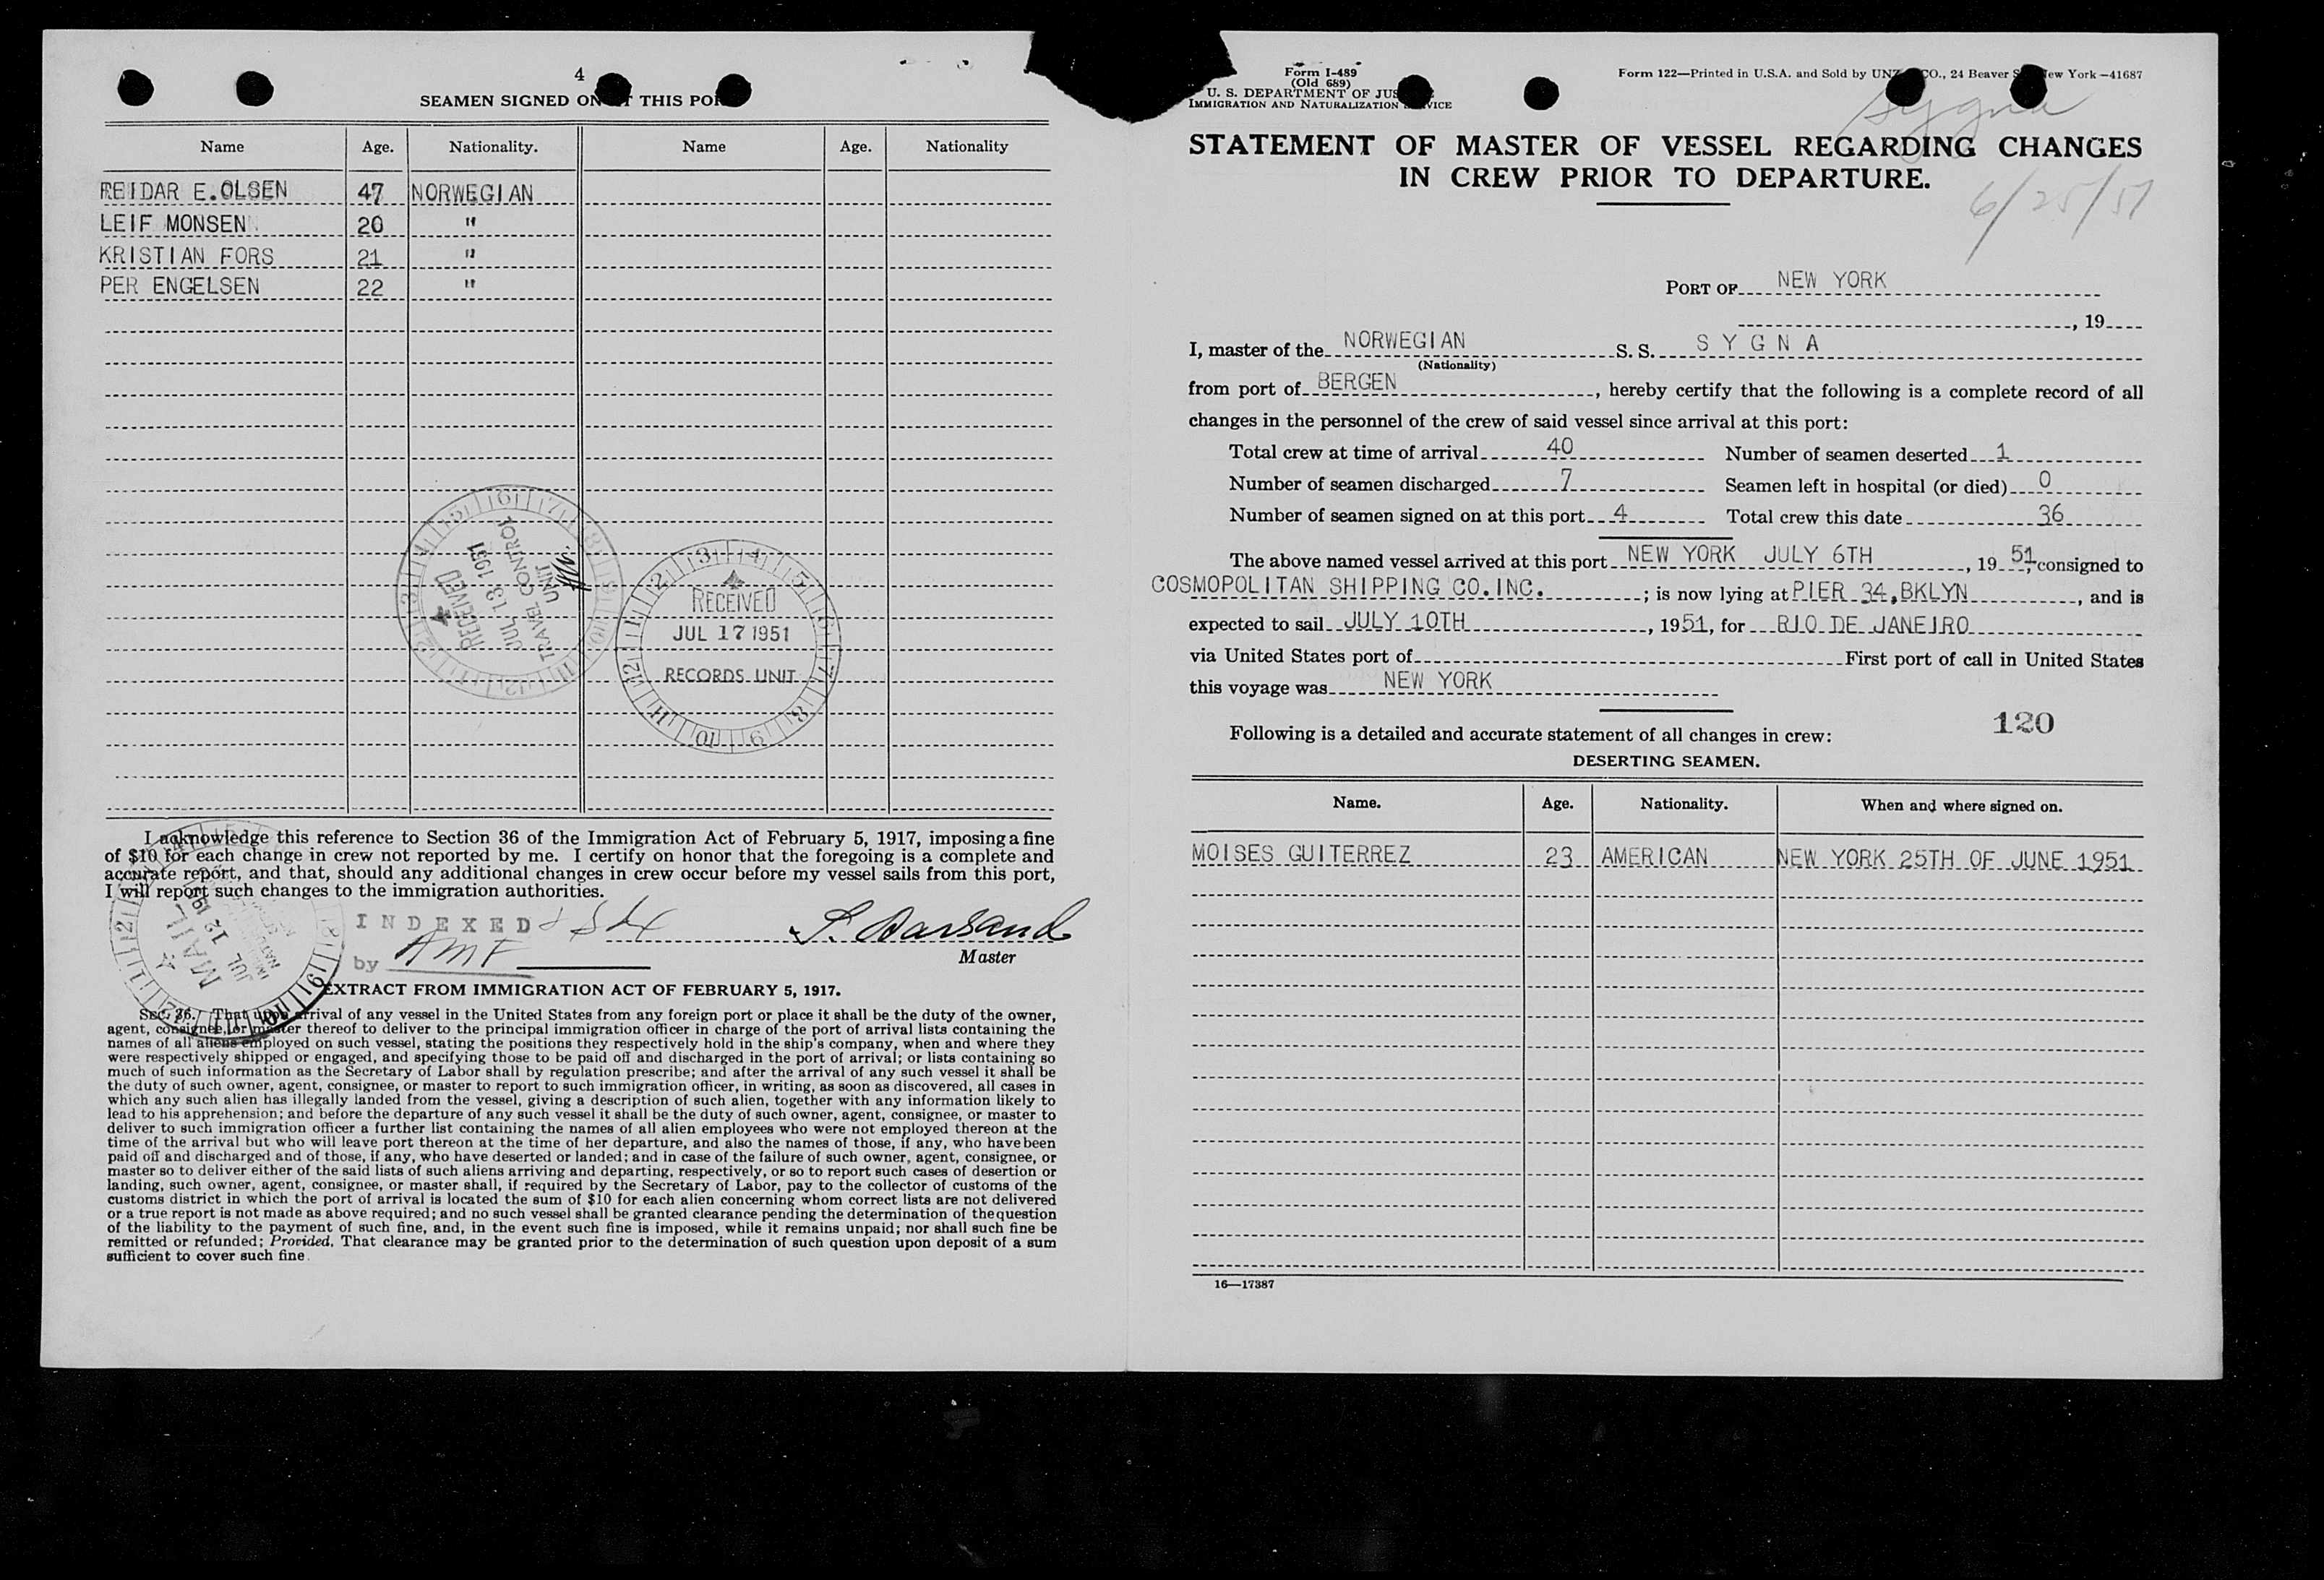 4
SEAMEN SIGNED ON THIS
Name Age. Nationality. Name Age. Nationality
REIDAR E. OLSEN 47 NORWEGIAN
LEIF MONSEN 20 "
KRISTIAN FORS 21 "
PER ENGELSEN 22 "
RECEIVED
JUL 13 1951
TRAVEL CONTROL
UNIT
RECEIVED
JUL 17 1951
RECORDS UNIT
I acknowledge this reference to Section 36 of the Immigration Act of February 5, 1917, imposing a fine
of $10 for each change in crew not reported by me. I certify on honor that the foregoing is a complete and
accurate report, and that, should any additional changes in crew occur before my vessel sails from this port,
I will report such changes to the immigration authorities.
MAIL
JUL 12
INDEXED
by AMF
Master
EXTRACT FROM IMMIGRATION ACT OF FEBRUARY 5, 1917.
SEC. 36. That upon arrival of any vessel in the United States from any foreign port or place it shall be the duty of the owner,
agent, consignee, or master thereof to deliver to the principal immigration officer in charge of the port of arrival lists containing the
names of all aliens employed on such vessel, stating the positions they respectively hold in the ship's company, when and where they
were respectively shipped or engaged, and specifying those to be paid off and discharged in the port of arrival; or lists containing so
much of such information as the Secretary of Labor shall by regulation prescribe; and after the arrival of any such vessel it shall be
the duty of such owner, agent, consignee, or master to report to such immigration officer, in writing, as soon as discovered, all cases in
which any such alien has illegally landed from the vessel, giving a description of such alien, together with any information likely to
lead to his apprehension; and before the departure of any such vessel it shall be the duty of such owner, agent, consignee, or master to
deliver to such immigration officer a further list containing the names of all alien employees who were not employed thereon at the
time of the arrival but who will leave port thereon at the time of her departure, and also the names of those, if any, who have been
paid off and discharged and of those, if any, who have deserted or landed; and in case of the failure of such owner, agent, consignee, or
master so to deliver either of the said lists of such aliens arriving and departing, respectively, or so to report such cases of desertion or
landing, such owner, agent, consignee, or master shall, if required by the Secretary of Labor, pay to the collector of customs of the
customs district in which the port of arrival is located the sum of $10 for each alien concerning whom correct lists are not delivered
or a true report is not made as above required; and no such vessel shall be granted clearance pending the determination of the question
of the liability to the payment of such fine, and, in the event such fine is imposed, while it remains unpaid; nor shall such fine be
remitted or refunded; Provided, That clearance may be granted prior to the determination of such question upon deposit of a sum
sufficient to cover such fine.
Form I-489
(Old 689)
U. S. DEPARTMENT OF
IMMIGRATION AND NATURALIZATION
Form 122—Printed in U.S.A. and Sold by CO., 24 Beaver New York—41687
Sygna
STATEMENT OF MASTER OF VESSEL REGARDING CHANGES
IN CREW PRIOR TO DEPARTURE.
6/25/51
PORT OF NEW YORK
, 19
I, master of the NORWEGIAN S. S. SYGNA
(Nationality)
from port of BERGEN, hereby certify that the following is a complete record of all
changes in the personnel of the crew of said vessel since arrival at this port:
Total crew at time of arrival 40 Number of seamen deserted 1
Number of seamen discharged 7 Seamen left in hospital (or died) 0
Number of seamen signed on at this port 4 Total crew this date 36
The above named vessel arrived at this port NEW YORK JULY 6TH, 1951, consigned to
COSMOPOLITAN SHIPPING CO. INC.; is now lying at PIER 34, BKLYN, and is
expected to sail JULY 10TH, 1951, for RIO DE JANEIRO
via United States port of First port of call in United States
this voyage was NEW YORK
120
Following is a detailed and accurate statement of all changes in crew:
DESERTING SEAMEN.
Name. Age. Nationality. When and where signed on.
MOISES GUITERREZ 23 AMERICAN NEW YORK 25TH OF JUNE 1951
16—17387